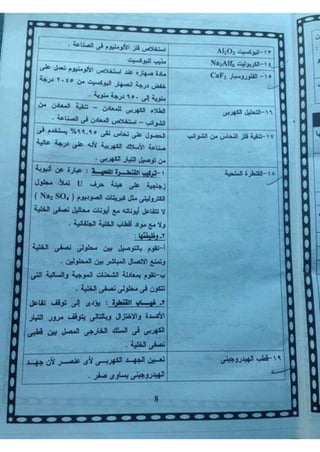 ١٣-البوكسيت Al2O3
استخلاص فلز الألومنيوم فى الصناعة .
١٤-الكريوليت Na3AlF6
مذيب للبوكسيت
١٥-الفلورسبار CaF2
مادة صهاره عند استخلاص الألومنيوم تعمل على
خفض درجة انصهار البوكسيت من ٢٠٤٥ درجة
مئوية إلى ٩٥٠ درجة مئوية .
١٦-التحليل الكهربى
الطلاء الكهربى للمعادن – تنقية المعادن من
الشوائب – استخلاص المعادن فى الصناعة .
١٧-تنقية فلز النحاس من الشوائب
الحصول على نحاس نقى ٩٩,٩٥% يستخدم فى
صناعة الأسلاك الكهربية لأنه على درجة عالية
من توصيل التيار الكهربى
١٨-القنطرة الملحية
١-تركيب القنطرة الملحية : عبارة عن أنبوبة
زجاجية على هيئة حرف U تملأ بمحلول
إلكتروليتى مثل كبريتات الصوديوم ( Na2 SO4 )
لا تتفاعل أيوناته مع أيونات محاليل نصفى الخلية
ولا مع مواد أقطاب الخلية الجلفانية .
٢-وظيفتها :
أ-تقوم بالتوصيل بين محلولى نصفى الخلية
وتمنع الاتصال المباشر بين المحلولين .
ب-تقوم بمعادلة الشحنات الموجبة والسالبة التى
تتكون فى محلولى نصفى الخلية .
٣-غياب القنطرة : يؤدى إلى توقف تفاعل
الأكسدة والاختزال وبالتالى يتوقف مرور التيار
الكهربى فى السلك الخارجى المصل بين قطبى
نصفى الخلية .
١٩-قطب الهيدروجينى
تعيين الجهد الكهربى لأى عنصر لأن جهد
الهيدروجينى يساوى صفر .
8